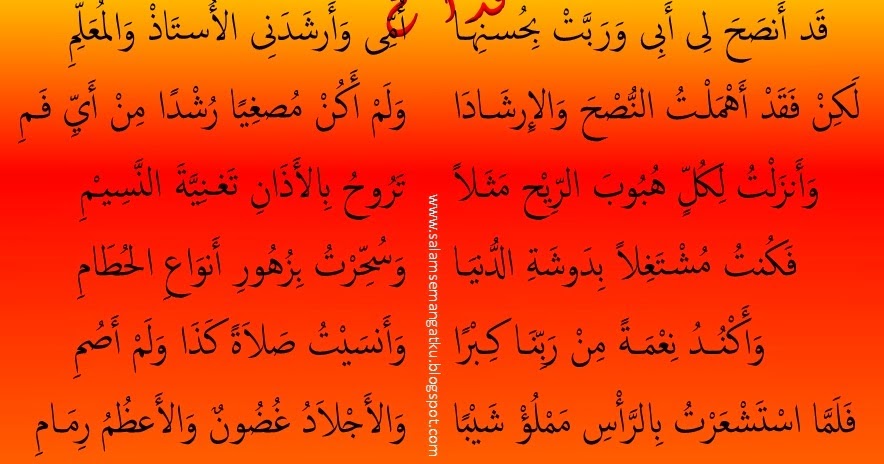 قَد أَنصَحَ لِى أَبِى وَرَبَّتْ بِحُسنِهَا أُمِّى وَأَرشَدَنِى الأُستَاذْ وَالمُعَلِّمِ
لَكِنْ فَقَدْ أَهْمَلْتُ النُّصْحَ وَالإِرشَادَا وَلَمْ أَكُنْ مُصغِيًا رُشْدًا مِنْ أَيِّ فَمِ
وَأَنزَلْتُ لِكُلٍّ هُبُوبَ الرِّيْحِ مَثَلاً تَرُوحُ بِالأَذَانِ تَغنِيَّةَ النَّسِيْمِ
فَكُنتُ مُشْتَغِلاً بِدَوشَةِ الدُّنيَا وَسُحِّرْتُ بِزُهُورِ أَنوَاعِ الحُطَامِ
وَأَكْنُدُ نِعْمَةً مِنْ رَبِّنَا كِبْرًا وَأَنسَيْتُ صَلاَةً كَذَا وَلَمْ أَصُمِ
فَلَمَّا اسْتَشْعَرْتُ بِالرَّأْسِ مَمْلُؤْ شَيْبًا وَالأَجْلاَدُ غُضُونٌ وَالأَعظُمُ رِمَامِ
www.salamsemangatku.blogspot.com